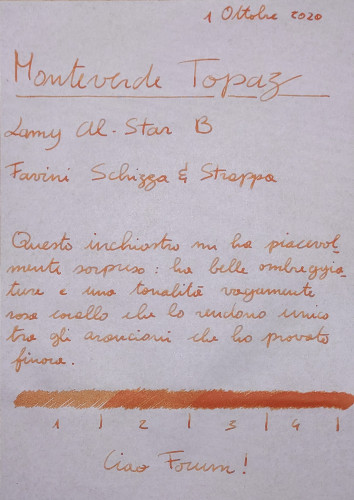 1 Ottobre 2020
Monteverde Topaz
Lamy Al-Star B
Favini Schizza & Strappa
Questo inchiostro mi ha piacevol-
mente sorpreso: ha belle ombreggia-
ture e una tonalità vagamente
rosa corallo che lo rendono unico
tra gli arancioni che ho provato
finora.
1 | 2 | 3 | 4 |
Ciao Forum!